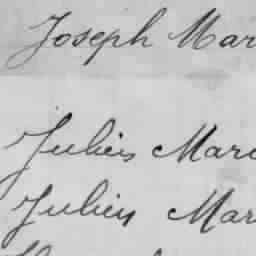 Joseph Mar
Julius Marc
Julius Mar